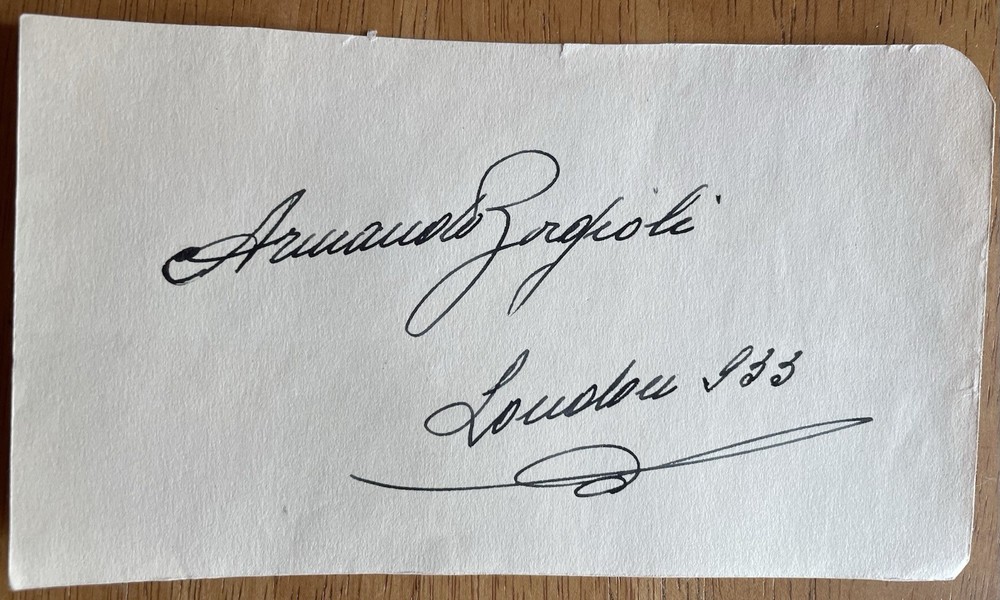 Armando Borgioli
London 933